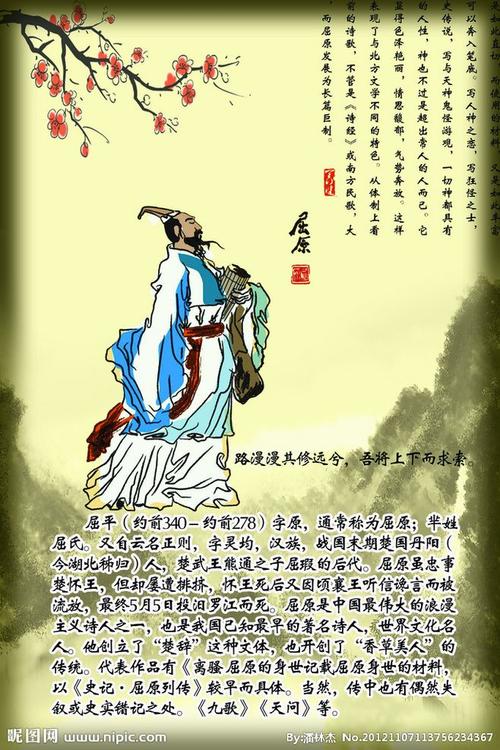 可以奔入笔底。写人神之恋，写狂怪之士，
史传说，写与天神鬼怪游观，一切神都具有
的人性，神也不过是超出常人的人而已。它
显得色泽艳丽，情思馥郁，气势奔放。这样
表现了与北方文学不同的特色。从体制上看
前的诗歌，不管是《诗经》或南方民歌，大
而屈原发展为长篇巨制。
屈原
路漫漫其修远兮，吾将上下而求索。
屈平（约前340－约前278）字原，通常称为屈原；芈姓
屈氏。又自云名正则，字灵均，汉族，战国末期楚国丹阳（
今湖北秭归）人，楚武王熊通之子屈瑕的后代。屈原虽忠事
楚怀王，但却屡遭排挤，怀王死后又因顷襄王听信谗言而被
流放，最终5月5日投汨罗江而死。屈原是中国最伟大的浪漫
主义诗人之一，也是我国已知最早的著名诗人，世界文化名
人。他创立了“楚辞”这种文体，也开创了“香草美人”的
传统。代表作品有《离骚 屈原的身世记载屈原身世的材料，
以《史记·屈原列传》较早而具体。当然，传中也有偶然失
叙或史实错记之处。《九歌》《天问》等。
昵图网 www.nipic.com
By:潘林杰 No.20121107113756234367